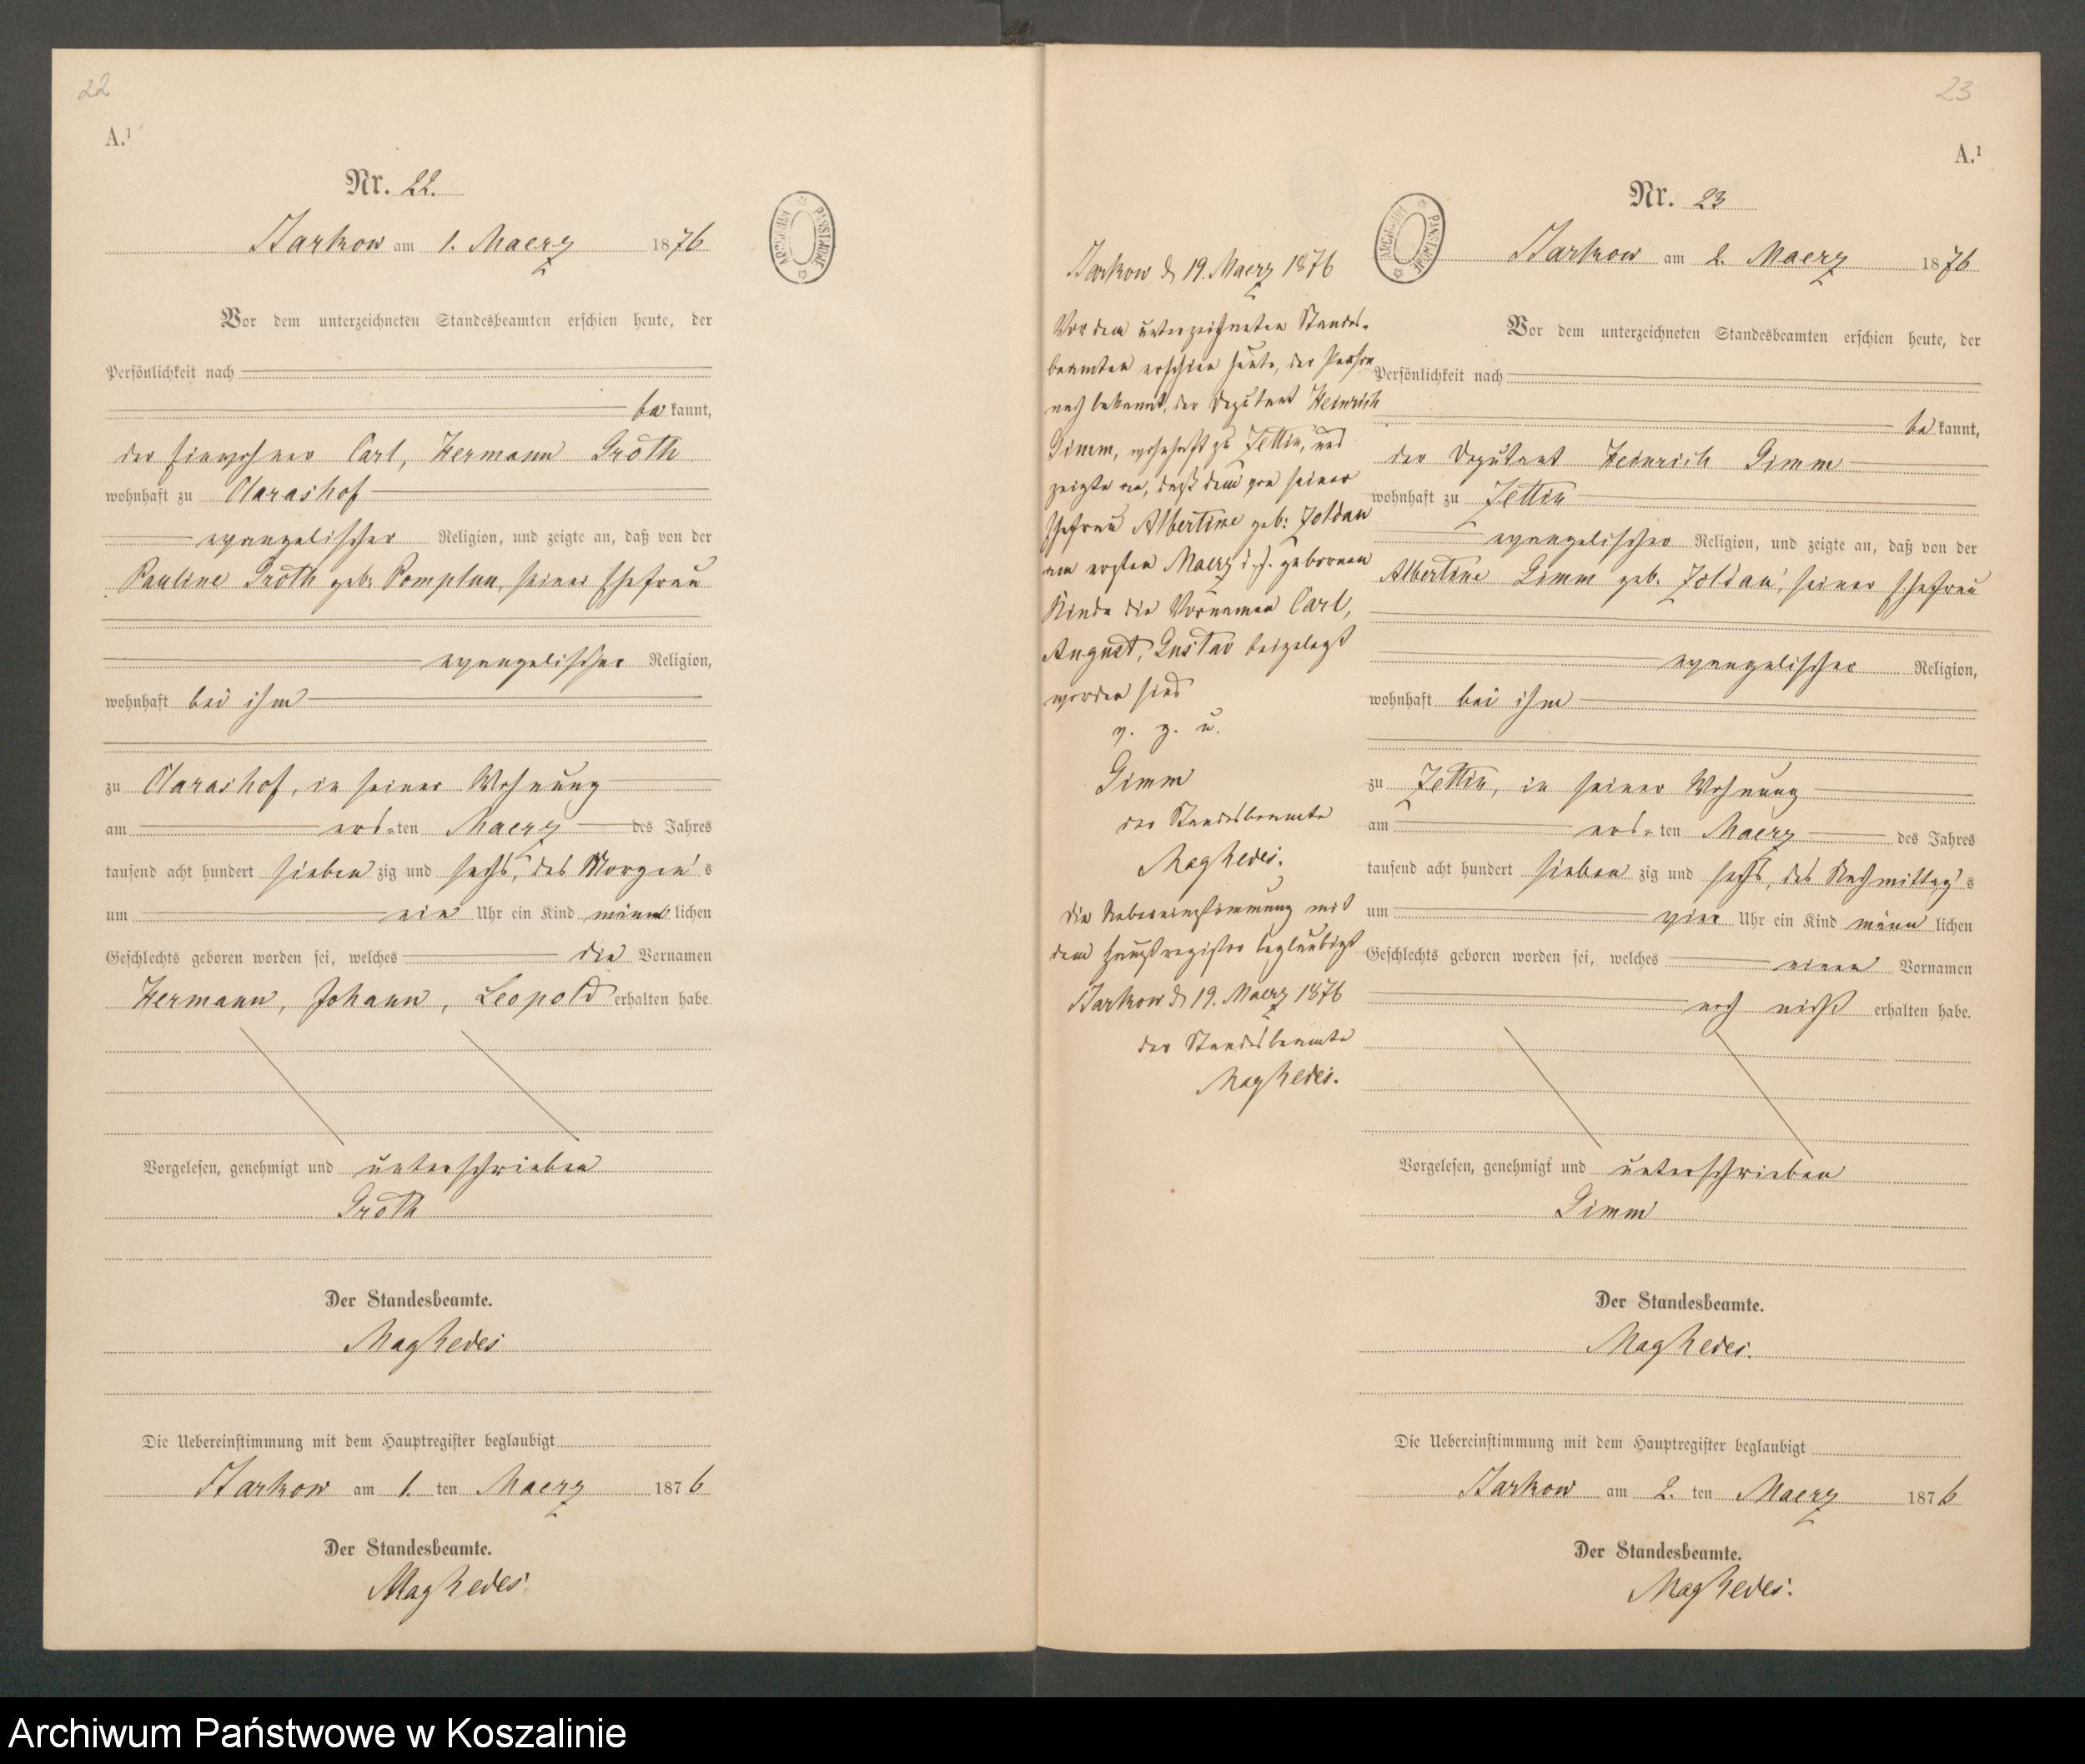 22
A.¹
Nr. 22.
Starkow am 1. Maerz 1876
ARCHIWUM PAŃSTWOWE
Vor dem unterzeichneten Standesbeamten erschien heute, der
Persönlichkeit nach
be kannt,
der Einwohner Carl, Hermann Groth
wohnhaft zu Clarashof
evangelischer Religion, und zeigte an, daß von der
Pauline Groth geb. Pomplun, seiner Ehefrau
evangelischer Religion,
wohnhaft bei ihm
zu Clarashof, in seiner Wohnung
am ers-ten Maerz des Jahres
tausend acht hundert sieben zig und sechs, des Morgens
um ein Uhr ein Kind männlichen
Geschlechts geboren worden sei, welches die Vornamen
Hermann, Johann, Leopold erhalten habe.
Vorgelesen, genehmigt und unterschrieben
Groth
Der Standesbeamte.
Die Uebereinstimmung mit dem Hauptregister beglaubigt
Starkow am 1. ten Maerz 1876
Der Standesbeamte.
Starkow d 19. Maerz 1876
Vor dem unterzeichneten Standes-
beamten erschien heute, der Person
nach bekannt, der Deputant Heinrich
Gimm, wohnhaft zu Zettin, und
zeigte an, daß dem von seiner
Ehefrau Albertine geb: Joldau
am ersten Maerz d. J. gebornen
Kinde die Vornamen Carl,
August, Gustav beigelegt
worden sind
v. g. u.
Gimm
der Standesbeamte
die Uebereinstimmung mit
dem Hauptregister beglaubigt
Starkow d 19. Maerz 1876
der Standesbeamte
23
A.¹
Nr. 23
ARCHIWUM PAŃSTWOWE
Starkow am 2. Maerz 1876
Vor dem unterzeichneten Standesbeamten erschien heute, der
Persönlichkeit nach
be kannt,
der Deputant Heinrich Gimm
wohnhaft zu Zettin
evangelischer Religion, und zeigte an, daß von der
Albertine Gimm geb. Joldau, seiner Ehefrau
evangelischer Religion,
wohnhaft bei ihm
zu Zettin, in seiner Wohnung
am ers-ten Maerz des Jahres
tausend acht hundert sieben zig und sechs, des Nachmittags
um vier Uhr ein Kind männ lichen
Geschlechts geboren worden sei, welches einen Vornamen
noch nicht erhalten habe.
Vorgelesen, genehmigt und unterschrieben
Gimm
Der Standesbeamte.
Die Uebereinstimmung mit dem Hauptregister beglaubigt
Starkow am 2. ten Maerz 1876
Der Standesbeamte.
Archiwum Państwowe w Koszalinie